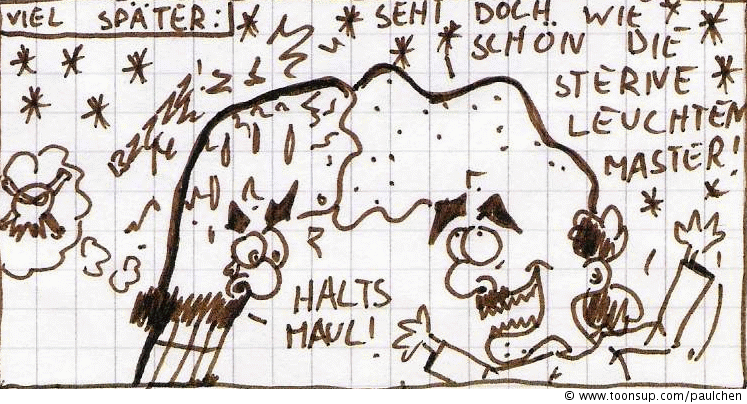 VIEL SPÄTER:
SEHT DOCH WIE
SCHÖN DIE
STERNE
LEUCHTEN
MASTER!
HALTS
MAUL!
© www.toonsup.com/paulchen